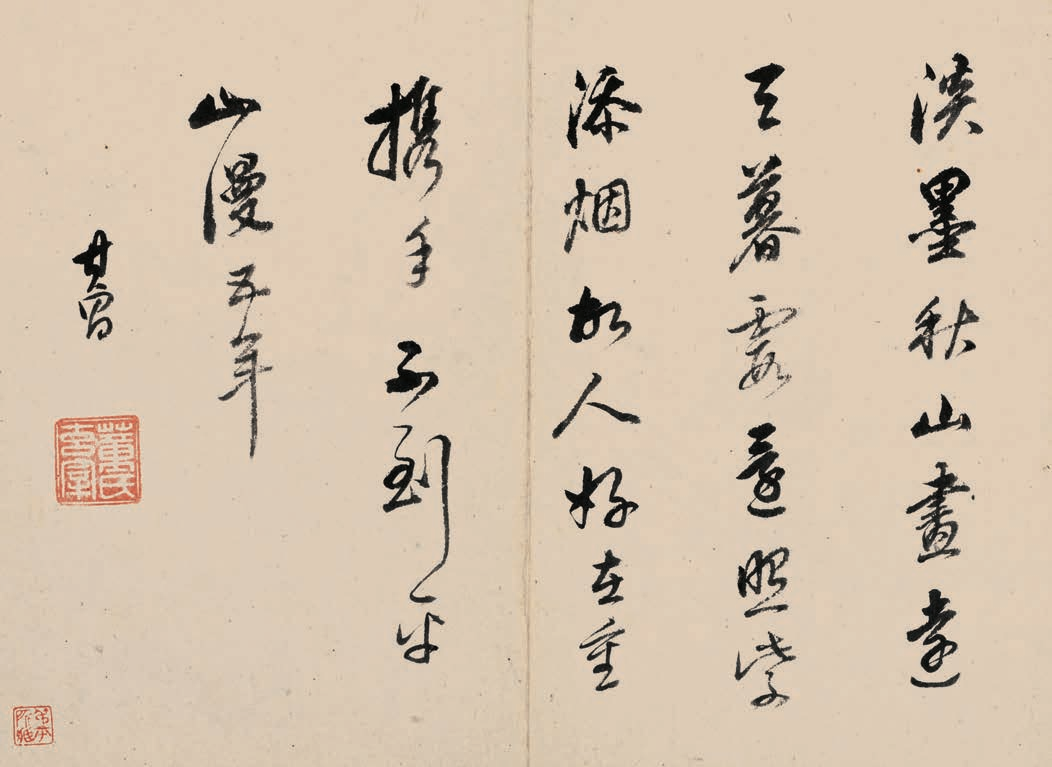 淡墨秋山畫遠
天暮霞還照紫
添烟故人好在重
携手不到平
山漫五年
其昌
董氏
玄宰